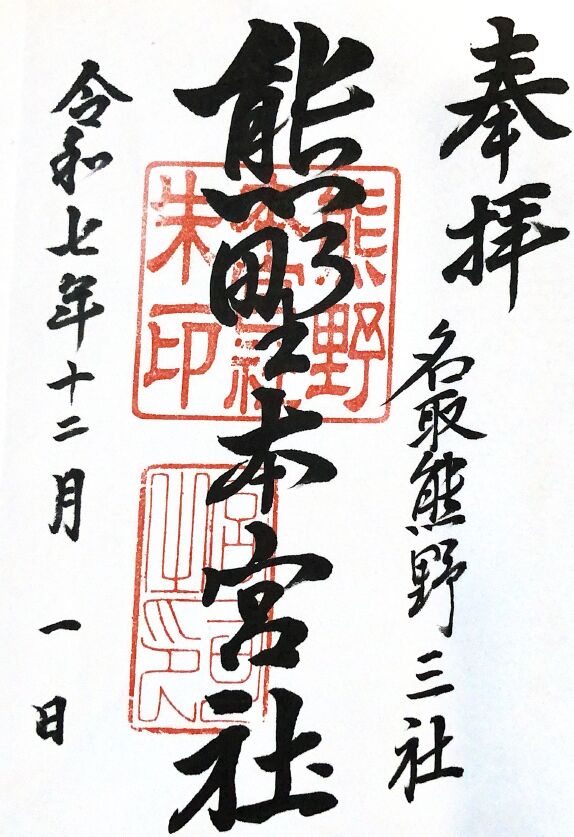 奉拝
名取熊野三社
熊野本宮社
熊野
本宮社
朱印
宮司
之印
令和七年十二月一日